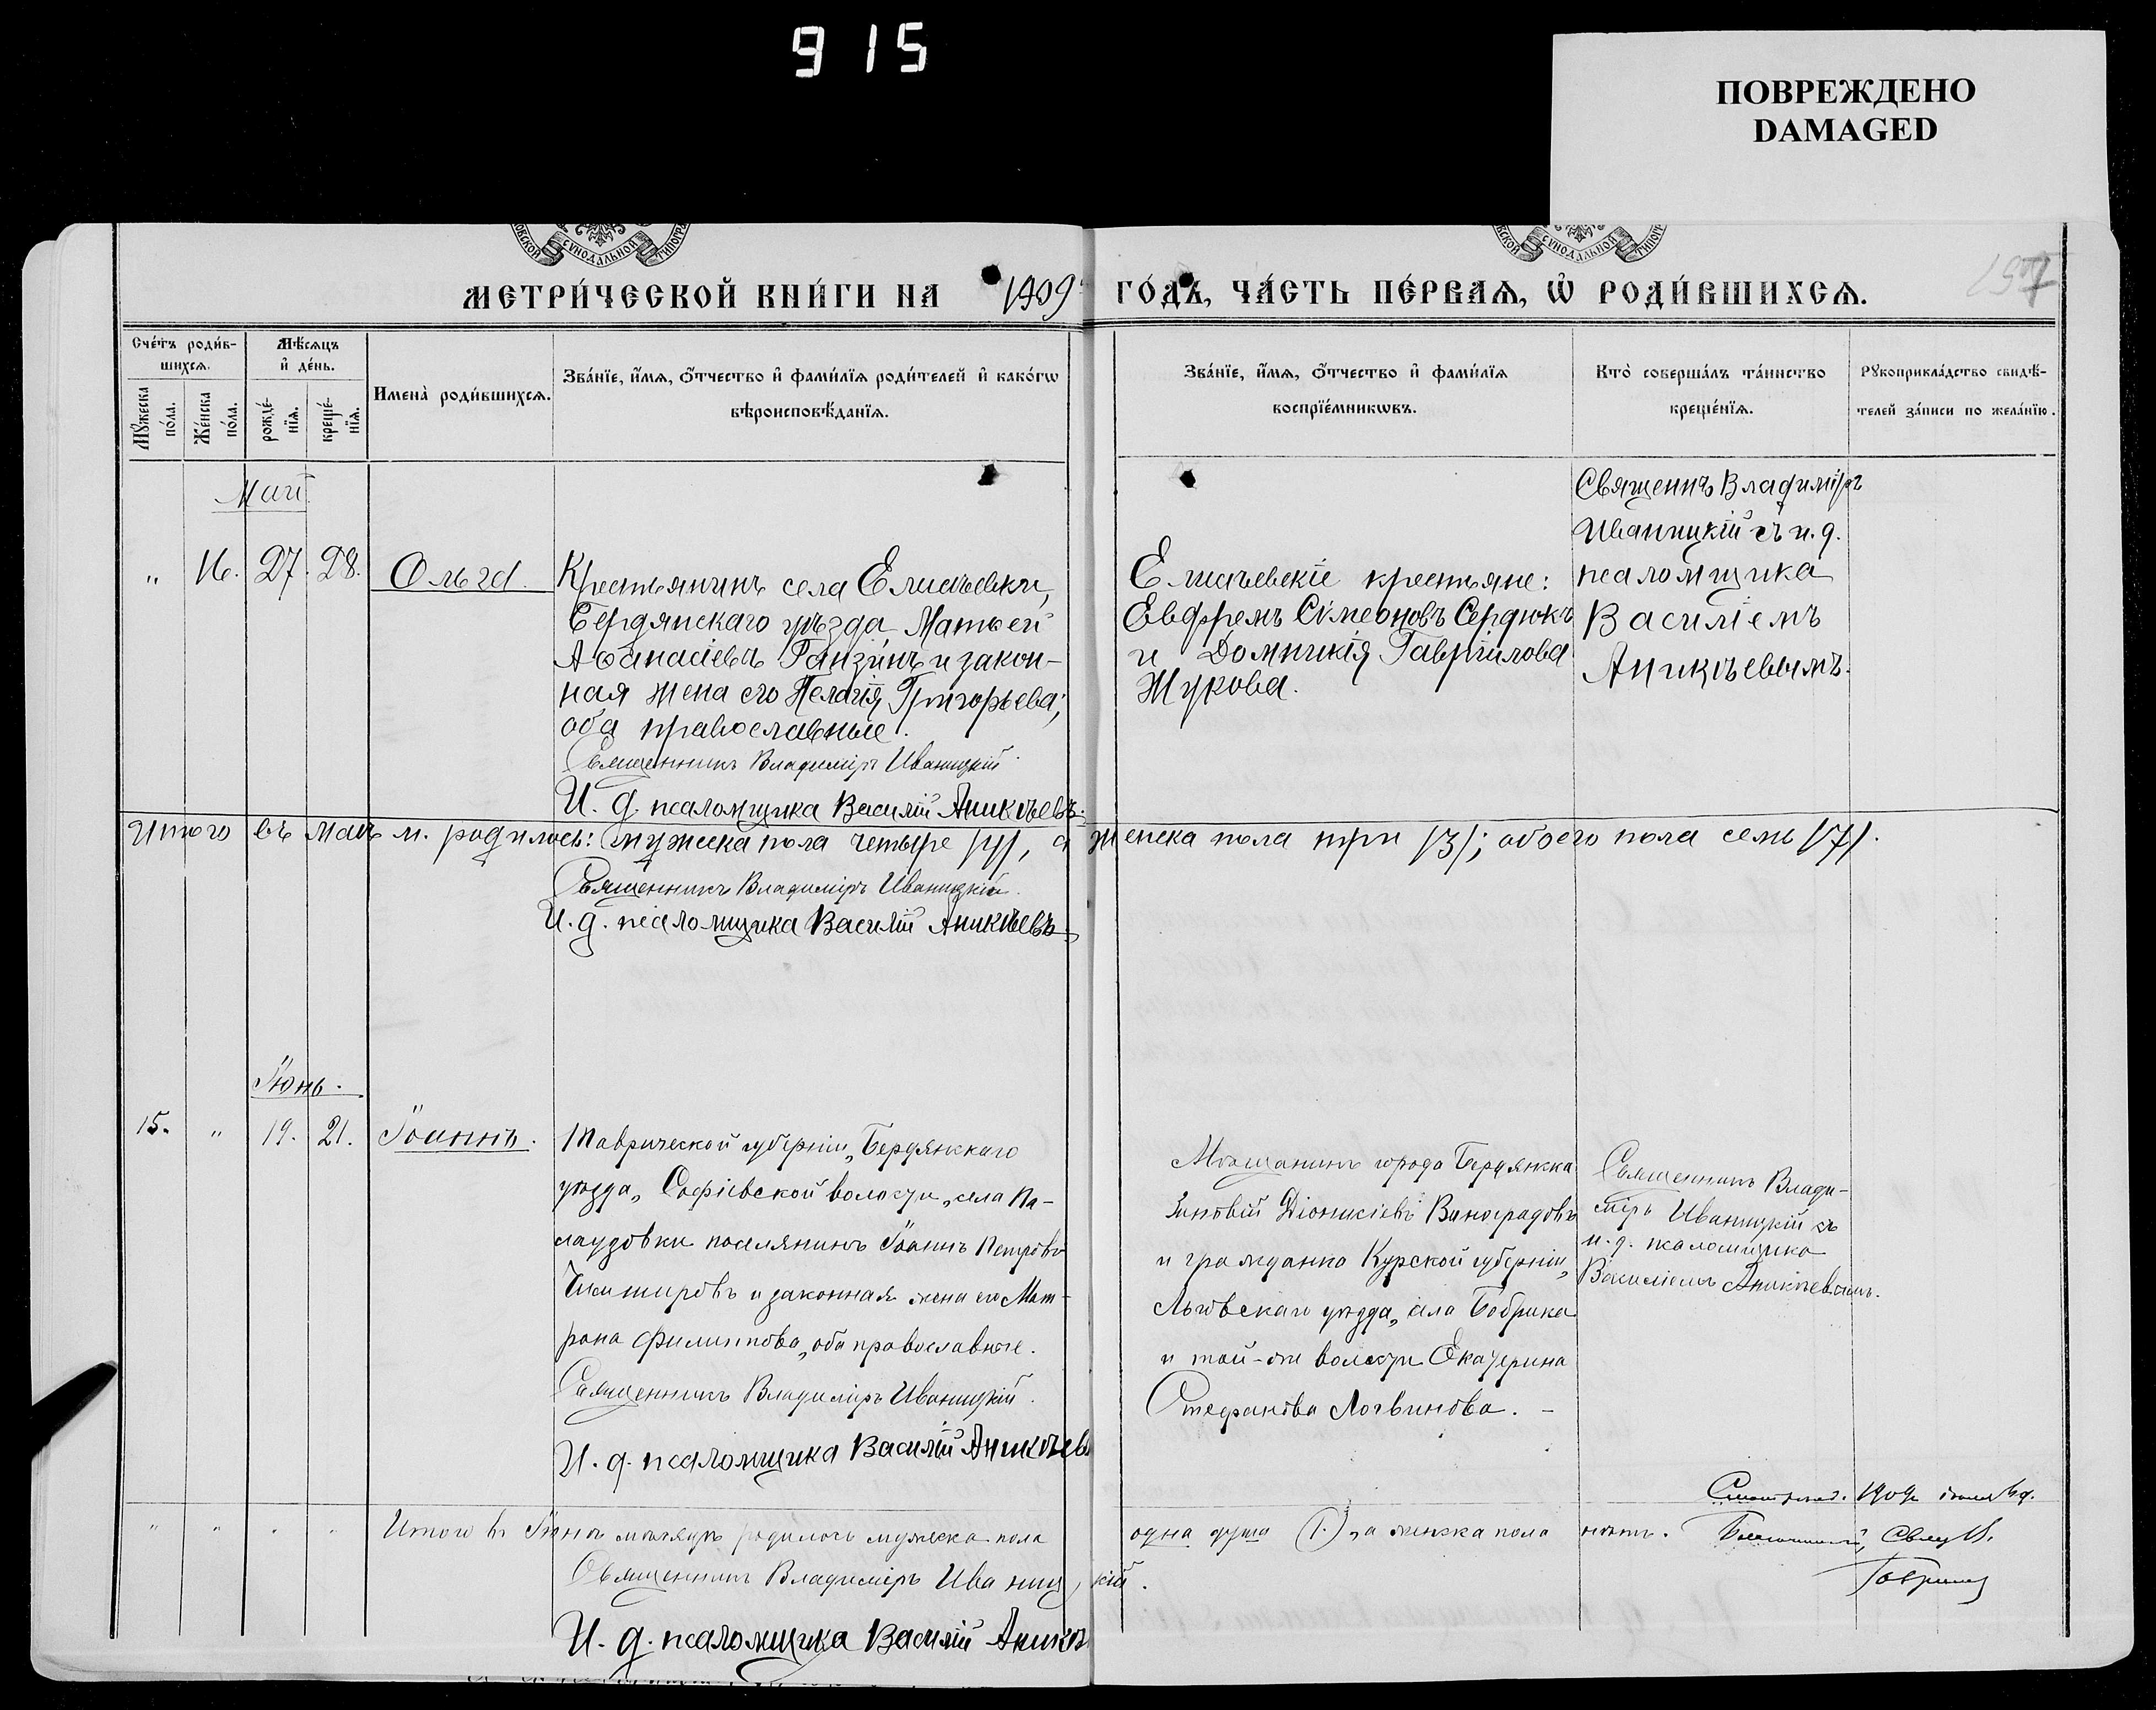 915
ПОВРЕЖДЕНО
DAMAGED
СѴНОДАЛЬНОЙ
СѴНОДАЛЬНОЙ
МЕТРИ́ЧЕСКОЙ КНИ́ГИ НА 1909 ГО́ДЪ, ЧА́СТЬ ПЕ́РВАѦ, Ѡ҆ РОДИ́ВШИХСѦ.
157
Сче́тъ роди́в-
шихсѧ.
Мѣ́сѧцъ
и҆ де́нь.
Мꙋ́жеска
по́ла.
Же́нска
по́ла.
рожде́-
нїѧ.
креще́-
нїѧ.
Имена̀ роди́вшихсѧ.
Зва́нїе, и҆́мѧ, ѻ҆́тчество и҆ фами́лїѧ роди́телей и҆ како́гѡ
вѣроисповѣ́данїѧ.
Зва́нїе, и҆́мѧ, ѻ҆́тчество и҆ фами́лїѧ
воспрїе́мникѡвъ.
Кто̀ соверша́лъ та́инство
креще́нїѧ.
Рꙋкоприкла́дство свидѣ́-
телей за́писи по жела́нїю.
Май
" 16. 27. 28. Ольга.
Крестьянинъ села Елисѣевки,
Бердянскаго уѣзда Матѳей
Аѳанасіевъ Ганзинъ и закон-
ная жена его Пелагія Григорьева;
оба православные.
Священникъ Владиміръ Иваницкій.
И. д. псаломщика Василій Аникѣевъ.
Елисѣевскіе крестьяне:
Евфремъ Сімеоновъ Сердюкъ
и Домникія Гавріилова
Жукова.
Священ. Владиміръ
Иваницкій съ и. д.
псаломщика
Василіемъ
Аникѣевымъ.
Итого въ маѣ м. родилось: мужеска пола четыре /4/, а женска пола три /3/; обоего пола семь /7/.
Священникъ Владиміръ Иваницкій.
И. д. псаломщика Василій Аникѣевъ
Іюнь.
15. " 19. 21. Іоаннъ.
Таврической губерніи, Бердянскаго
уѣзда, Софіевской волости, села Па-
лаузовки поселянинъ Іоаннъ Петровъ
и законная жена его Мат-
рона Филиппова, оба православные.
Священникъ Владиміръ Иваницкій.
И. д. псаломщика Василій Аникѣев
Мѣщанинъ города Бердянска
Зиновій Діонисіевъ Виноградовъ
и гражданка Курской губерніи,
Льговскаго уѣзда, села Бобрика
и той-же волости Екатерина
Стефанова Логвинова. -
Священникъ Влади-
міръ Иваницкій съ
и. д. псаломщика
Василіемъ Аникѣевымъ.
" " " " Итого въ Іюнѣ мѣсяцѣ родилось мужеска пола одна душа (1.), а женска пола нѣтъ.
Священникъ Владиміръ Иваницкій.
И. д. псаломщика Василій Аникѣ
1909
Благочинный, Свящ.